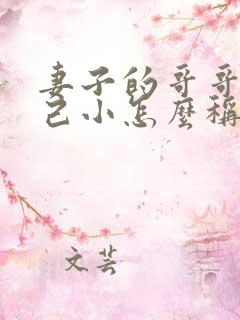 妻子的哥哥
己小怎麼稱
文芸